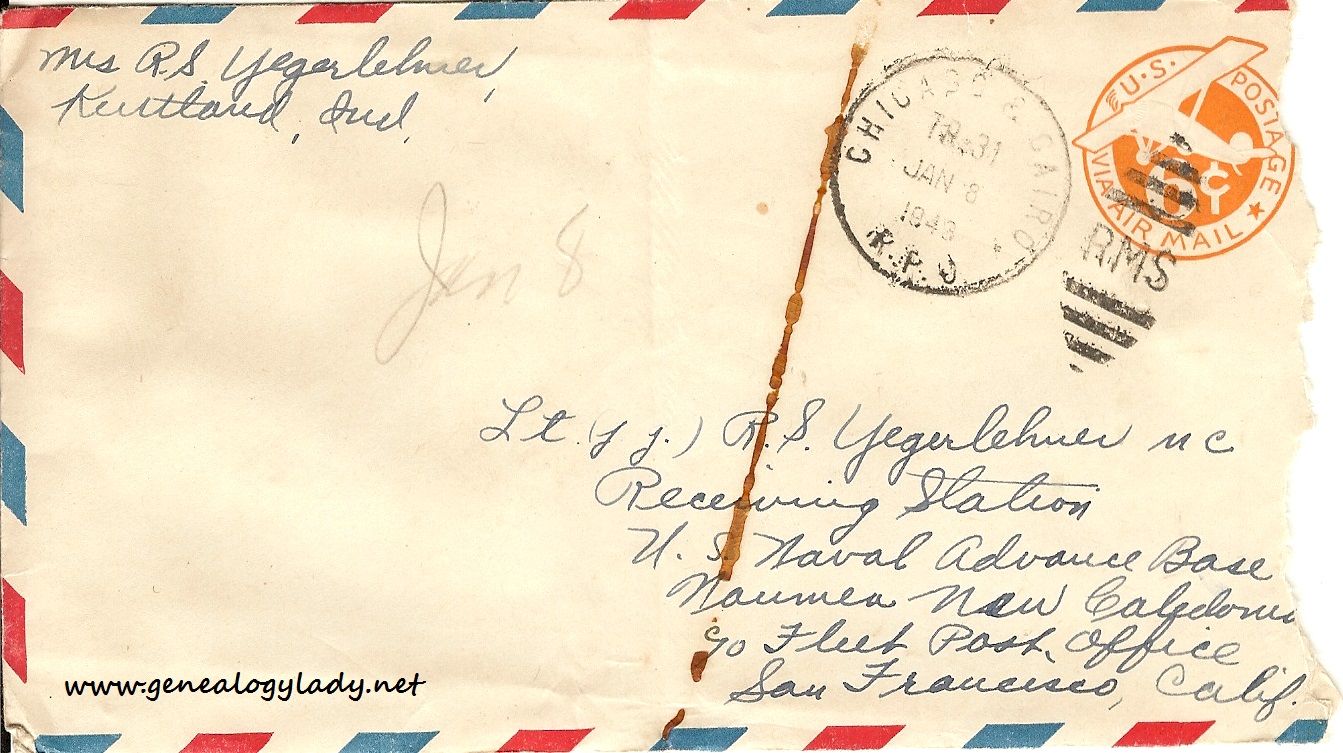 Mrs R.S. Yegerlehner,
Kentland, Ind.
CHICAGO & CAIRO
TR.31
JAN 8
1943
R.P.O
U.S. POSTAGE
6¢
VIA AIR MAIL
RMS
Jan 8
Lt. (j g.) R.S. Yegerlehner MC
Receiving Station
U. S. Naval Advance Base
Noumea New Caledonia
c/o Fleet Post Office
San Francisco, Calif.
www.genealogylady.net